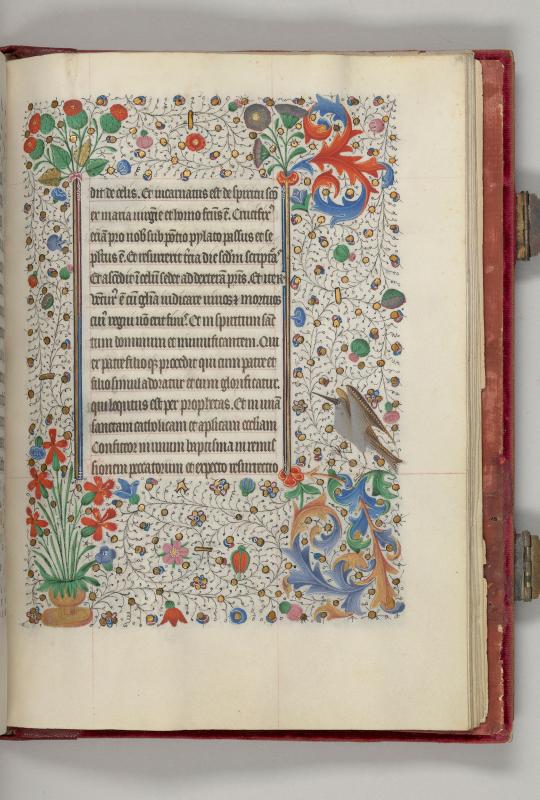 dit de celis. Et incarnatus est de spiritu scō
ex maria virgīe et homo fctūs ē. Crucifix'
eciā pro nob sub pōtio pylato passus et se
pltus ē. Et resurrexit tcia die scdm scriptas
Et ascēdit ī celū sedet ad dexterā pris. Et iterū
vētur' ē cū glīa iudicare viuos et mortuos
cui' regni nō erit finis. Et in spiritum san
ctum dominum et viuificantem. Qui
ex patre filio q; procedit qui cum patre et
filio simul adoratur et cum glorificatur.
qui loqutus est per prophetas. Et in vnā
sanctam catholicam et aplicam ecctiam
Confiteor vnum baptisma in remis
sionem peccatorum et expecto resurrectio